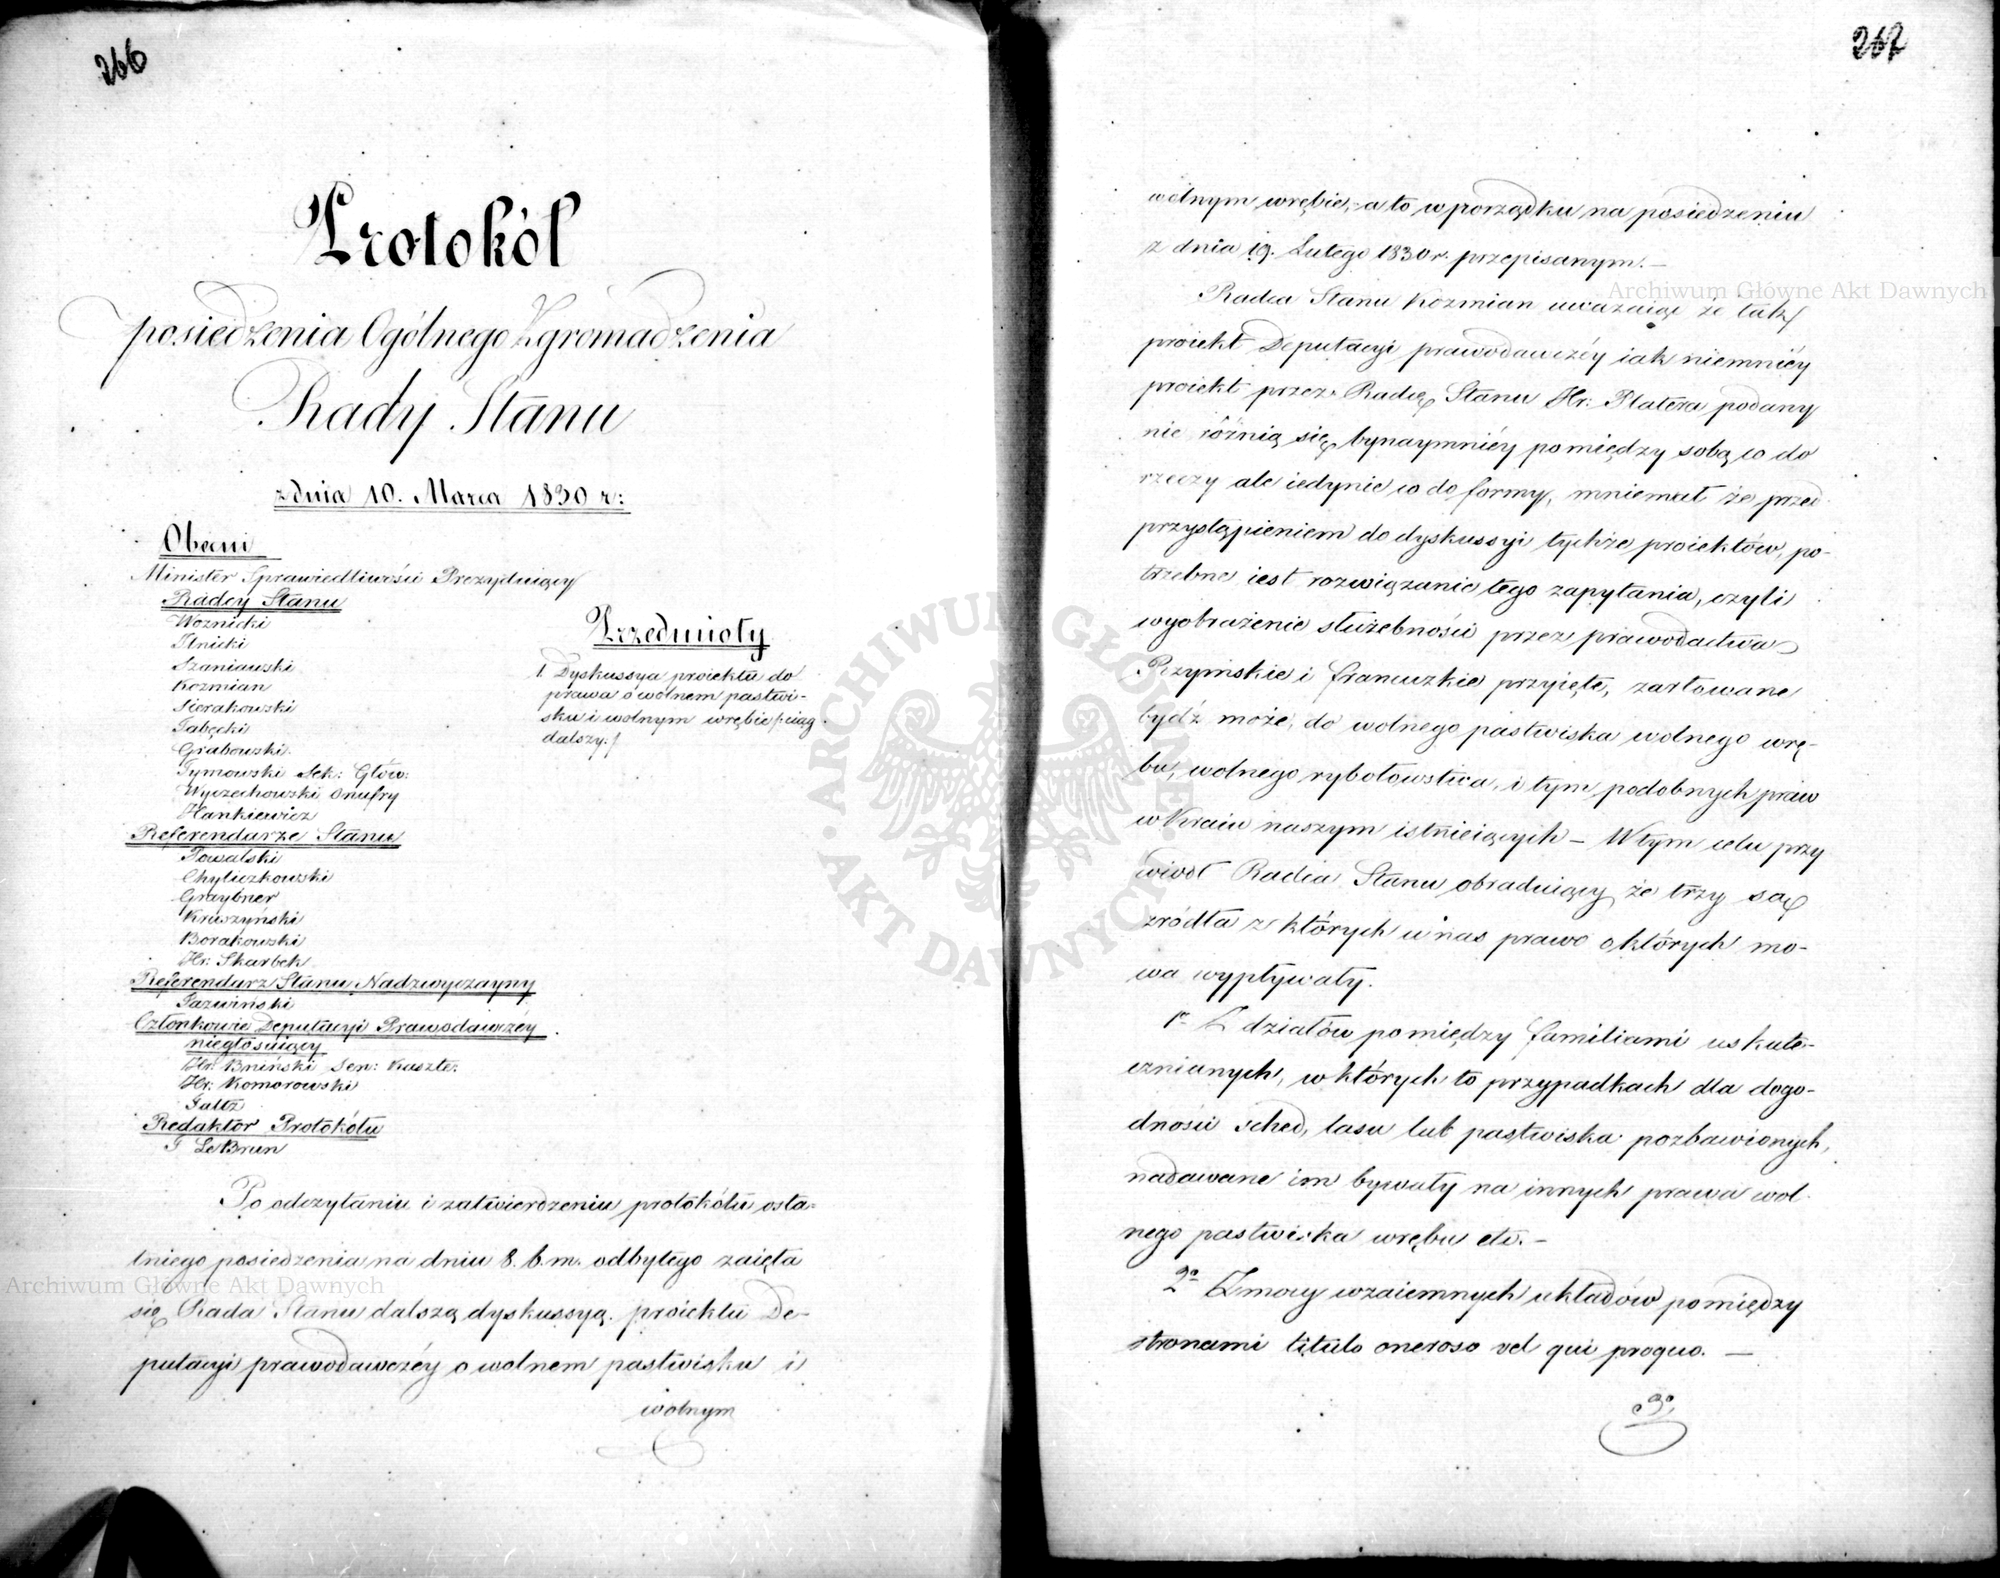 266
Protokół
posiedzenia Ogólnego Zgromadzenia
Rady Stanu
z dnia 10. Marca 1830 r:
Obecni
Minister Sprawiedliwości Prezyduiący
Radcy Stanu
Woznicki
Linicki
Szaniawski
Kozmian
Sierakowski
Tabęcki
Grabowski
Tymowski Sek: Głów:
Wyczechowski Onufry
Hankiewicz
Referendarze Stanu
Powalski
Chyliczkowski
Graybner
Kruszyński
Borakowski
Hr: Skarbek
Referendarz Stanu Nadzwyczayny
Jazwiński
Członkowie Deputacyi Prawodawczéy
niegłosuiący
Hr: Bniński Sen: Kaszte:
Hr: Komorowski
Faltz
Redaktor Protokółu
J LeBrun
Przedmioty
1. Dyskussya proiektu do
prawa o wolnem pastwi-
sku i wolnym wrębie /: ciąg
dalszy :/
Po odczytaniu i zatwierdzeniu protokółu osta-
tniego posiedzenia na dniu 8. b. m. odbytego zaięła
się Rada Stanu dalszą dyskussyą proiektu De-
putacyi prawodawczéy o wolnem pastwisku i
wolnym
267
wolnym wrębie, a to w porządku na posiedzeniu
z dnia 19. Lutego 1830 r. przepisanym. —
Radca Stanu Kozmian uważaiąc że tak
proiekt Deputacyi prawodawczéy iak niemniéy
proiekt przez Radcę Stanu Hr: Platera podany
nie różnią się bynaymniéy pomiędzy sobą co do
rzeczy ale iedynie co do formy, mniemał że przed
przystąpieniem do dyskussyi tychże proiektów, po-
trzebne iest rozwiązanie tego zapytania, czyli
wyobrażenie służebności przez prawodactwa
Rzymskie i francuzkie przyięte, zastowane
bydź może, do wolnego pastwiska wolnego wrę-
bu, wolnego rybołowstwa, i tym podobnych praw
w Kraiu naszym istnieiących — W tym celu przy
wiódł Radca Stanu obraduiący że trzy są
zródła z których u nas prawo o których mo-
wa wypływały.
1º Z działów pomiędzy familiami uskute-
cznianych, w których to przypadkach dla dogo-
dności sched, lasu lub pastwiska pozbawionych,
nadawane im bywały na innych prawa wol-
nego pastwiska wrębu etc. —
2º Z mocy wzaiemnych układów pomiędzy
stronami titulo oneroso vel qui proquo. —
3º
Archiwum Główne Akt Dawnych
Archiwum Główne Akt Dawnych
ARCHIWUM GŁÓWNE AKT DAWNYCH